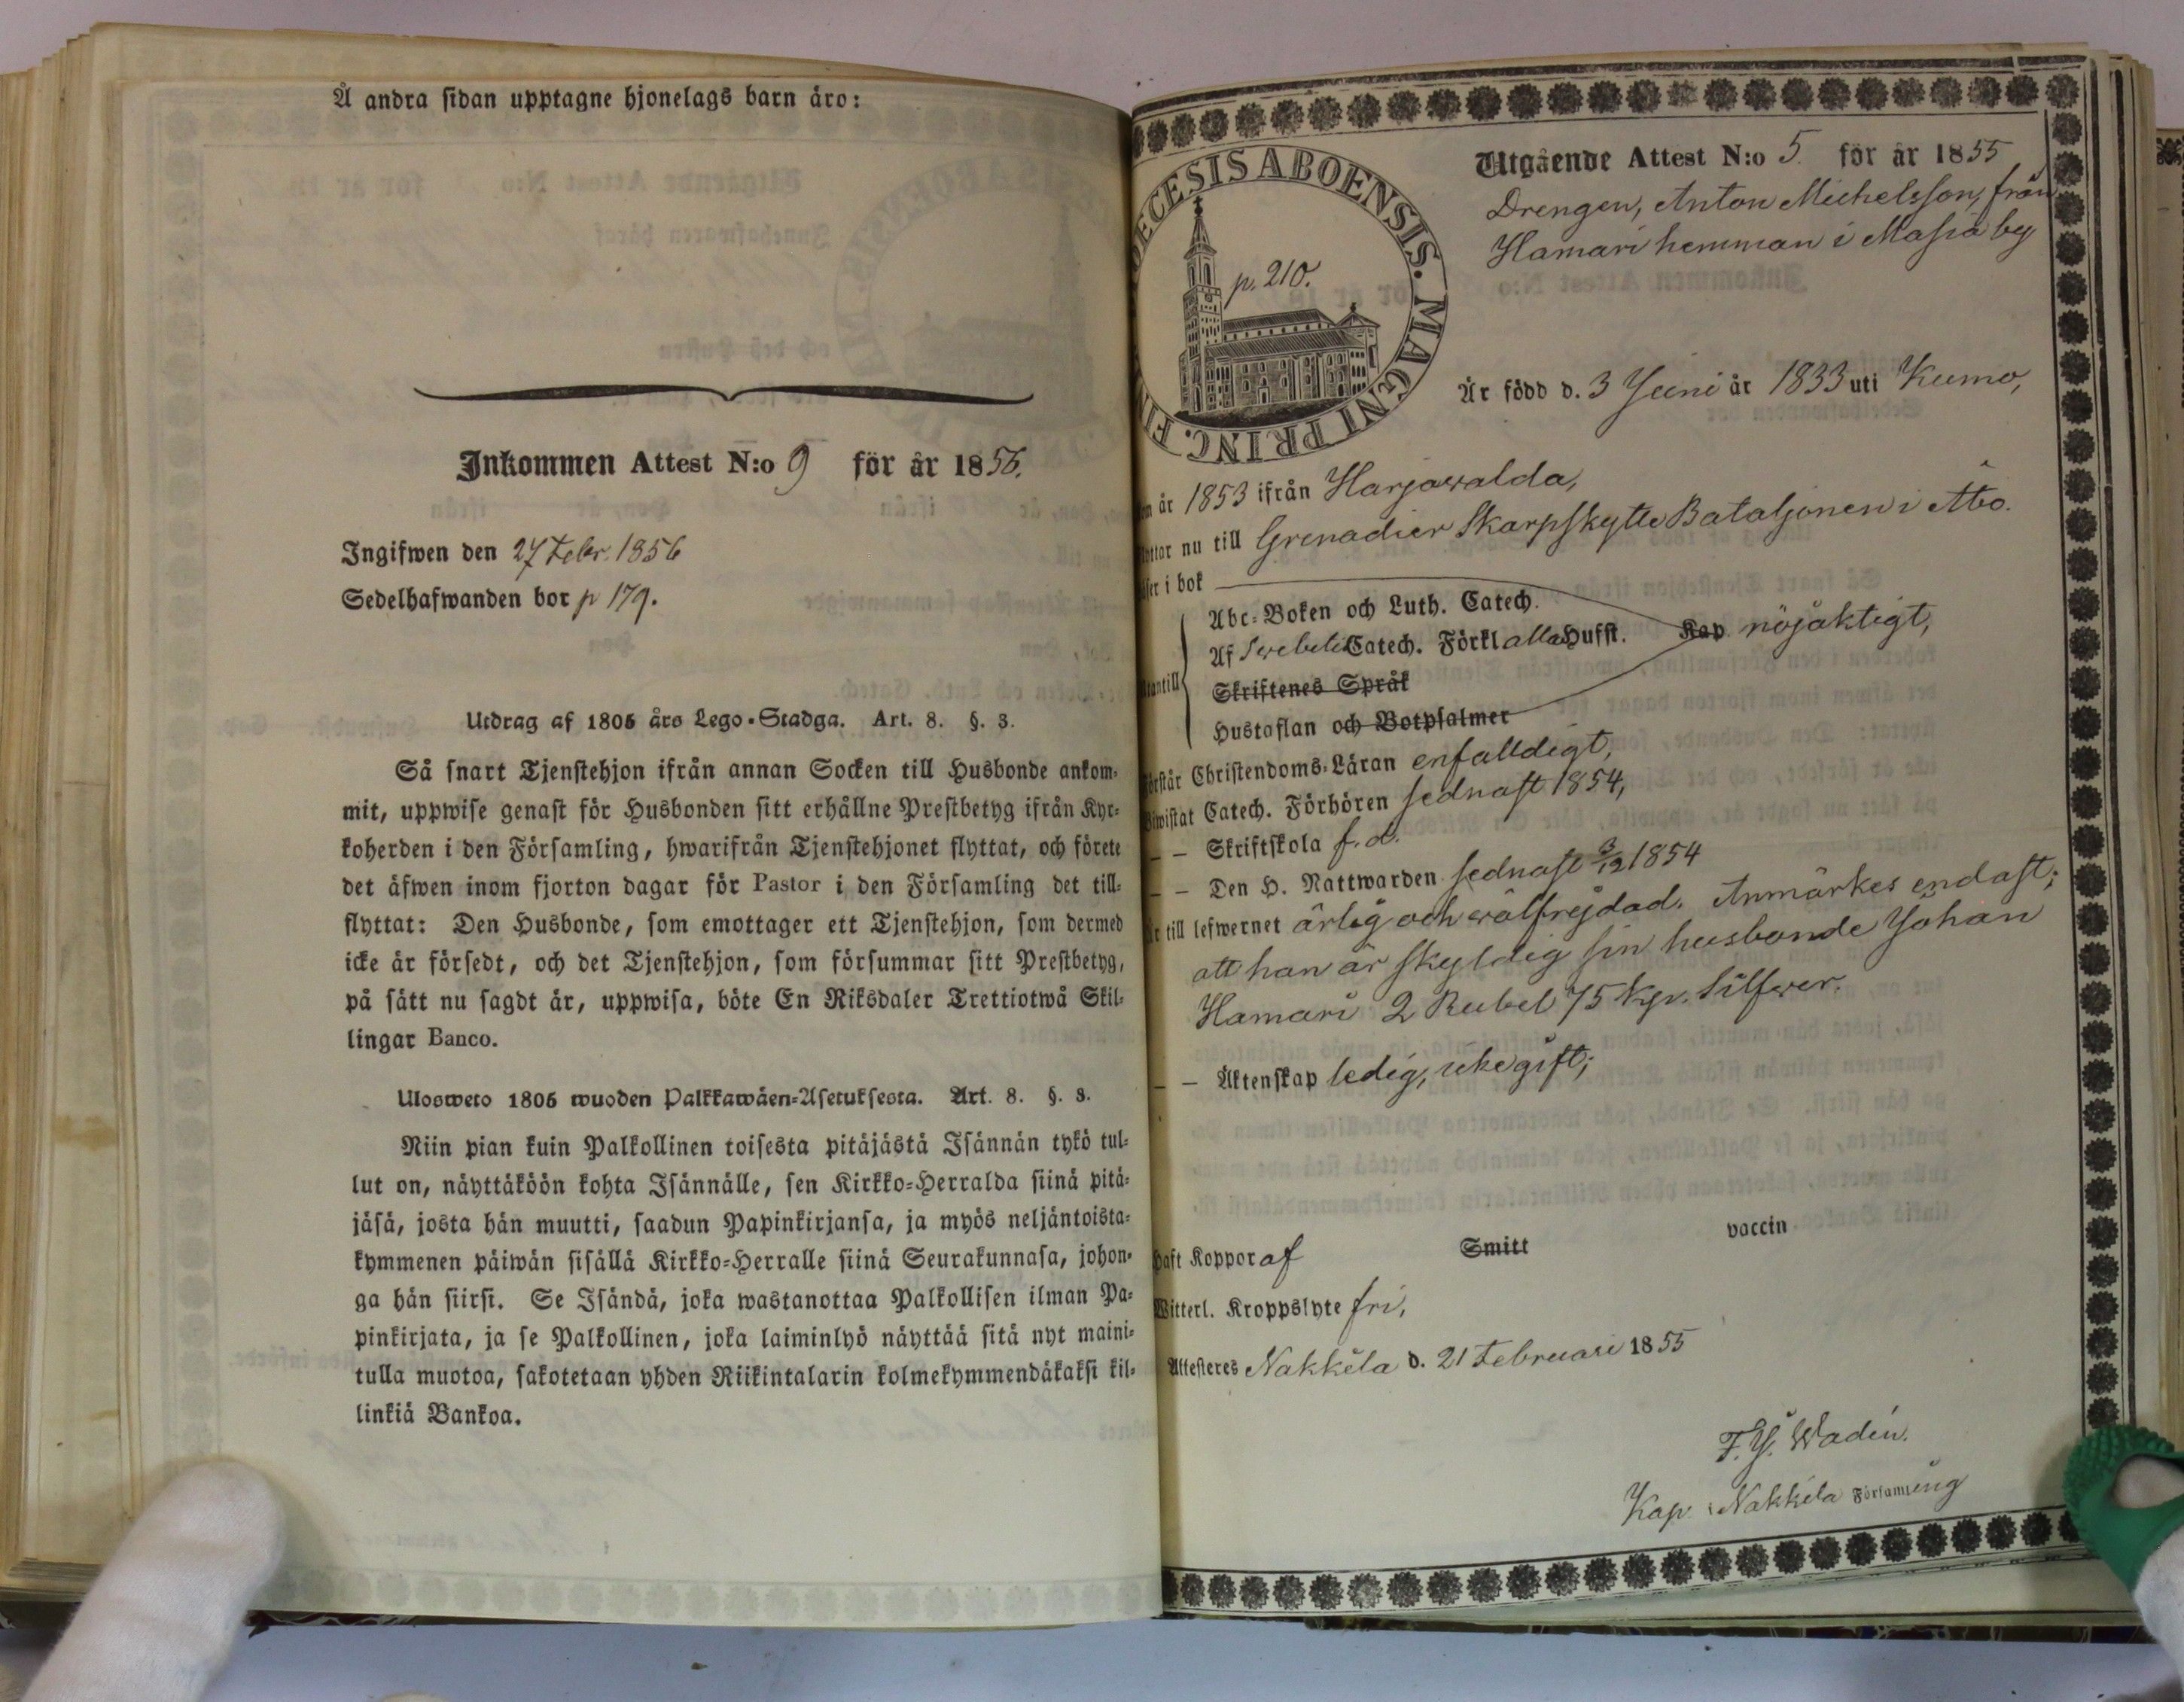 Å andra sidan upptagne hjonelags barn äro:
Inkommen Attest N:o 9 för år 1856.
Ingifwen den 27 Febr. 1856
Sedelhafwanden bor p 179.
Utdrag af 1805 års Lego-Stadga. Art. 8. §. 3.
Så snart Tjenstehjon ifrån annan Socken till Husbonde ankom-
mit, uppwise genast för Husbonden sitt erhållne Prestbetyg ifrån Kyr-
koherden i den Församling, hwarifrån Tjenstehjonet flyttat, och förete
det äfwen inom fjorton dagar för Pastor i den Församling det till-
flyttat: Den Husbonde, som emottager ett Tjenstehjon, som dermed
icke är försedt, och det Tjenstehjon, som försummar sitt Prestbetyg,
på sätt nu sagdt är, uppwisa, böte En Riksdaler Trettiotwå Skil-
lingar Banco.
Ulosweto 1805 wuoden Palkkawäen-Asetuksesta. Art. 8. §. 3.
Niin pian kuin Palkollinen toisesta pitäjästä Isännän tykö tul-
lut on, näyttäköön kohta Isännälle, sen Kirkko-Herralda siinä pitä-
jäsä, josta hän muutti, saadun Papinkirjansa, ja myös neljäntoista-
kymmenen päiwän sisällä Kirkko-Herralle siinä Seurakunnasa, johon-
ga hän siirsi. Se Isändä, joka wastanottaa Palkollisen ilman Pa-
pinkirjata, ja se Palkollinen, joka laiminlyö näyttää sitä nyt maini-
tulla muotoa, sakotetaan yhden Riikintalarin kolmekymmendäkaksi kil-
linkiä Bankoa.
DECESIS ABOENSIS. MAGNI PRINC. FIN
p. 210.
Utgående Attest N:o 5. för år 1855
Drengen, Anton Michelsson, från
Hamari hemman i Masia by
Är född d. 3 Juni år 1833 uti Kumo,
år 1853 ifrån Harjawalda,
nu till Grenadier Skarpskytte Bataljonen i Åbo.
i bok
Abc-Boken och Luth. Catech.
Af Swebelii Catech. Förkl alla Hufst. Kap nöjaktigt,
Skriftenes Språk
Hustaflan och Botpsalmer
Christendoms-Läran enfalldigt,
Catech. Förhören sednast 1854,
— — Skriftskola f. d.
— — Den H. Nattwarden sednast 3/12 1854
till lefwernet ärlig och wälfrejdad. Anmärkes endast;
att han är skyldig sin husbonde Johan
Hamari 2 Rubel 75 Kop. Silfwer.
— — Äktenskap ledig, icke gift;
Haft Koppor af Smitt vaccin
Witterl. Kroppslyte fri,
Attesteres Nakkila d. 21 Februari 1855
F. J. Wadén.
Kap. i Nakkila Församling